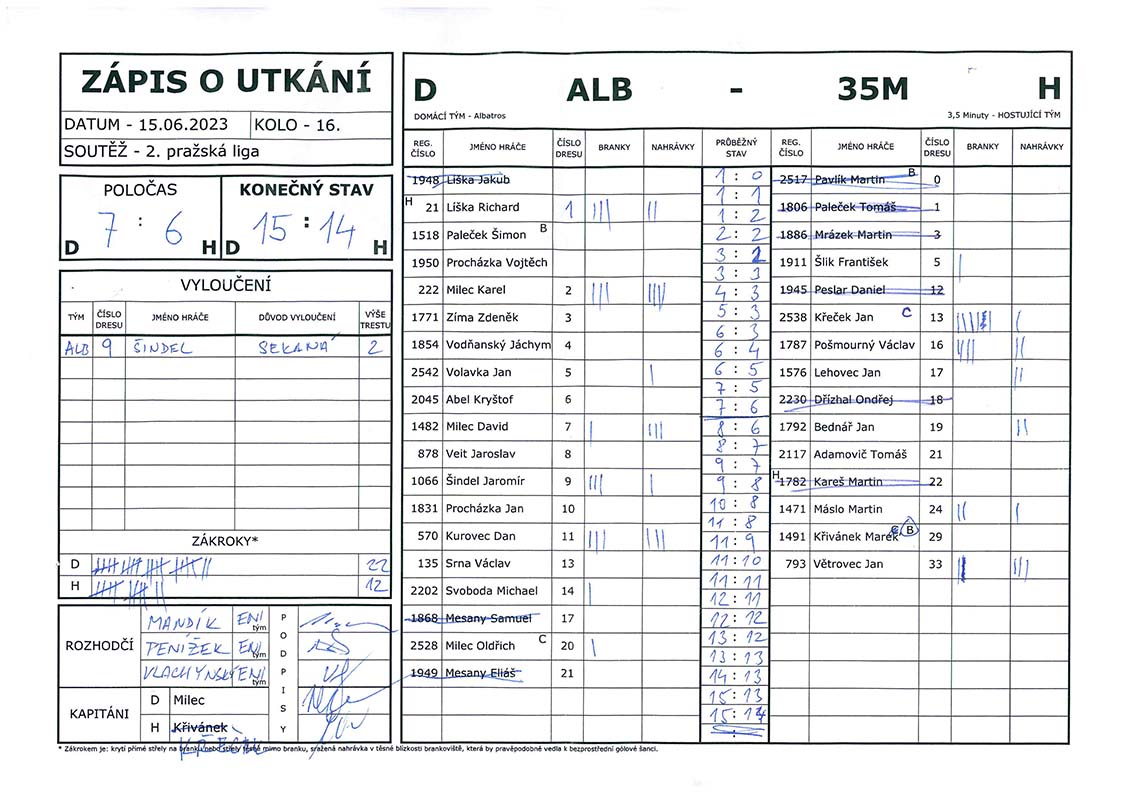 ZÁPIS O UTKÁNÍ
DATUM - 15.06.2023 KOLO - 16.
SOUTĚŽ - 2. pražská liga
POLOČAS KONEČNÝ STAV
D 7 : 6 H D 15 : 14 H
VYLOUČENÍ
TÝM ČÍSLO DRESU JMÉNO HRÁČE DŮVOD VYLOUČENÍ VÝŠE TRESTU
ALB 9 ŠINDEL SEKANÁ 2
ZÁKROKY*
D 22
H 12
ROZHODČÍ MANDÍK ENI tým
PENÍŽEK ENI tým
VLACHYNSKÝ ENI tým
PODPISY
KAPITÁNI D Milec
H Křivánek
KŘEČEK
D ALB - 35M H
DOMÁCÍ TÝM - Albatros 3,5 Minuty - HOSTUJÍCÍ TÝM
REG. ČÍSLO JMÉNO HRÁČE ČÍSLO DRESU BRANKY NAHRÁVKY PRŮBĚŽNÝ STAV REG. ČÍSLO JMÉNO HRÁČE ČÍSLO DRESU BRANKY NAHRÁVKY
1948 Liška Jakub
H 21 Liška Richard 1 ||| ||
1518 Paleček Šimon B
1950 Procházka Vojtěch
222 Milec Karel 2 |||
1771 Zíma Zdeněk 3
1854 Vodňanský Jáchym 4
2542 Volavka Jan 5 |
2045 Abel Kryštof 6
1482 Milec David 7 | |||
878 Veit Jaroslav 8
1066 Šindel Jaromír 9 ||| |
1831 Procházka Jan 10
570 Kurovec Dan 11 ||| |||
135 Srna Václav 13
2202 Svoboda Michael 14 |
1868 Mesany Samuel 17
2528 Milec Oldřich C 20 |
1949 Mesany Eliáš 21
1 : 0
1 : 1
1 : 2
2 : 2
3 : 2
3 : 3
4 : 3
5 : 3
6 : 3
6 : 4
6 : 5
7 : 5
7 : 6
8 : 6
8 : 7
9 : 7
9 : 8
10 : 8
11 : 8
11 : 9
11 : 10
11 : 11
12 : 11
12 : 12
13 : 12
13 : 13
14 : 13
15 : 13
15 : 14
2517 Pavlík Martin B 0
1806 Paleček Tomáš 1
1886 Mrázek Martin 3
1911 Šlik František 5 |
1945 Peslar Daniel 12
2538 Křeček Jan C 13 |
1787 Pošmourný Václav 16 ||| ||
1576 Lehovec Jan 17 ||
2230 Dřízhal Ondřej 18
1792 Bednář Jan 19 ||
2117 Adamovič Tomáš 21
H 1782 Kareš Martin 22
1471 Máslo Martin 24 || |
1491 Křivánek Marek C B 29
793 Větrovec Jan 33 |||
* Zákrokem je: krytí přímé střely na branku nebo střely těsně mimo branku, sražená nahrávka v těsné blízkosti brankoviště, která by pravěpodobně vedla k bezprostřední gólové šanci.